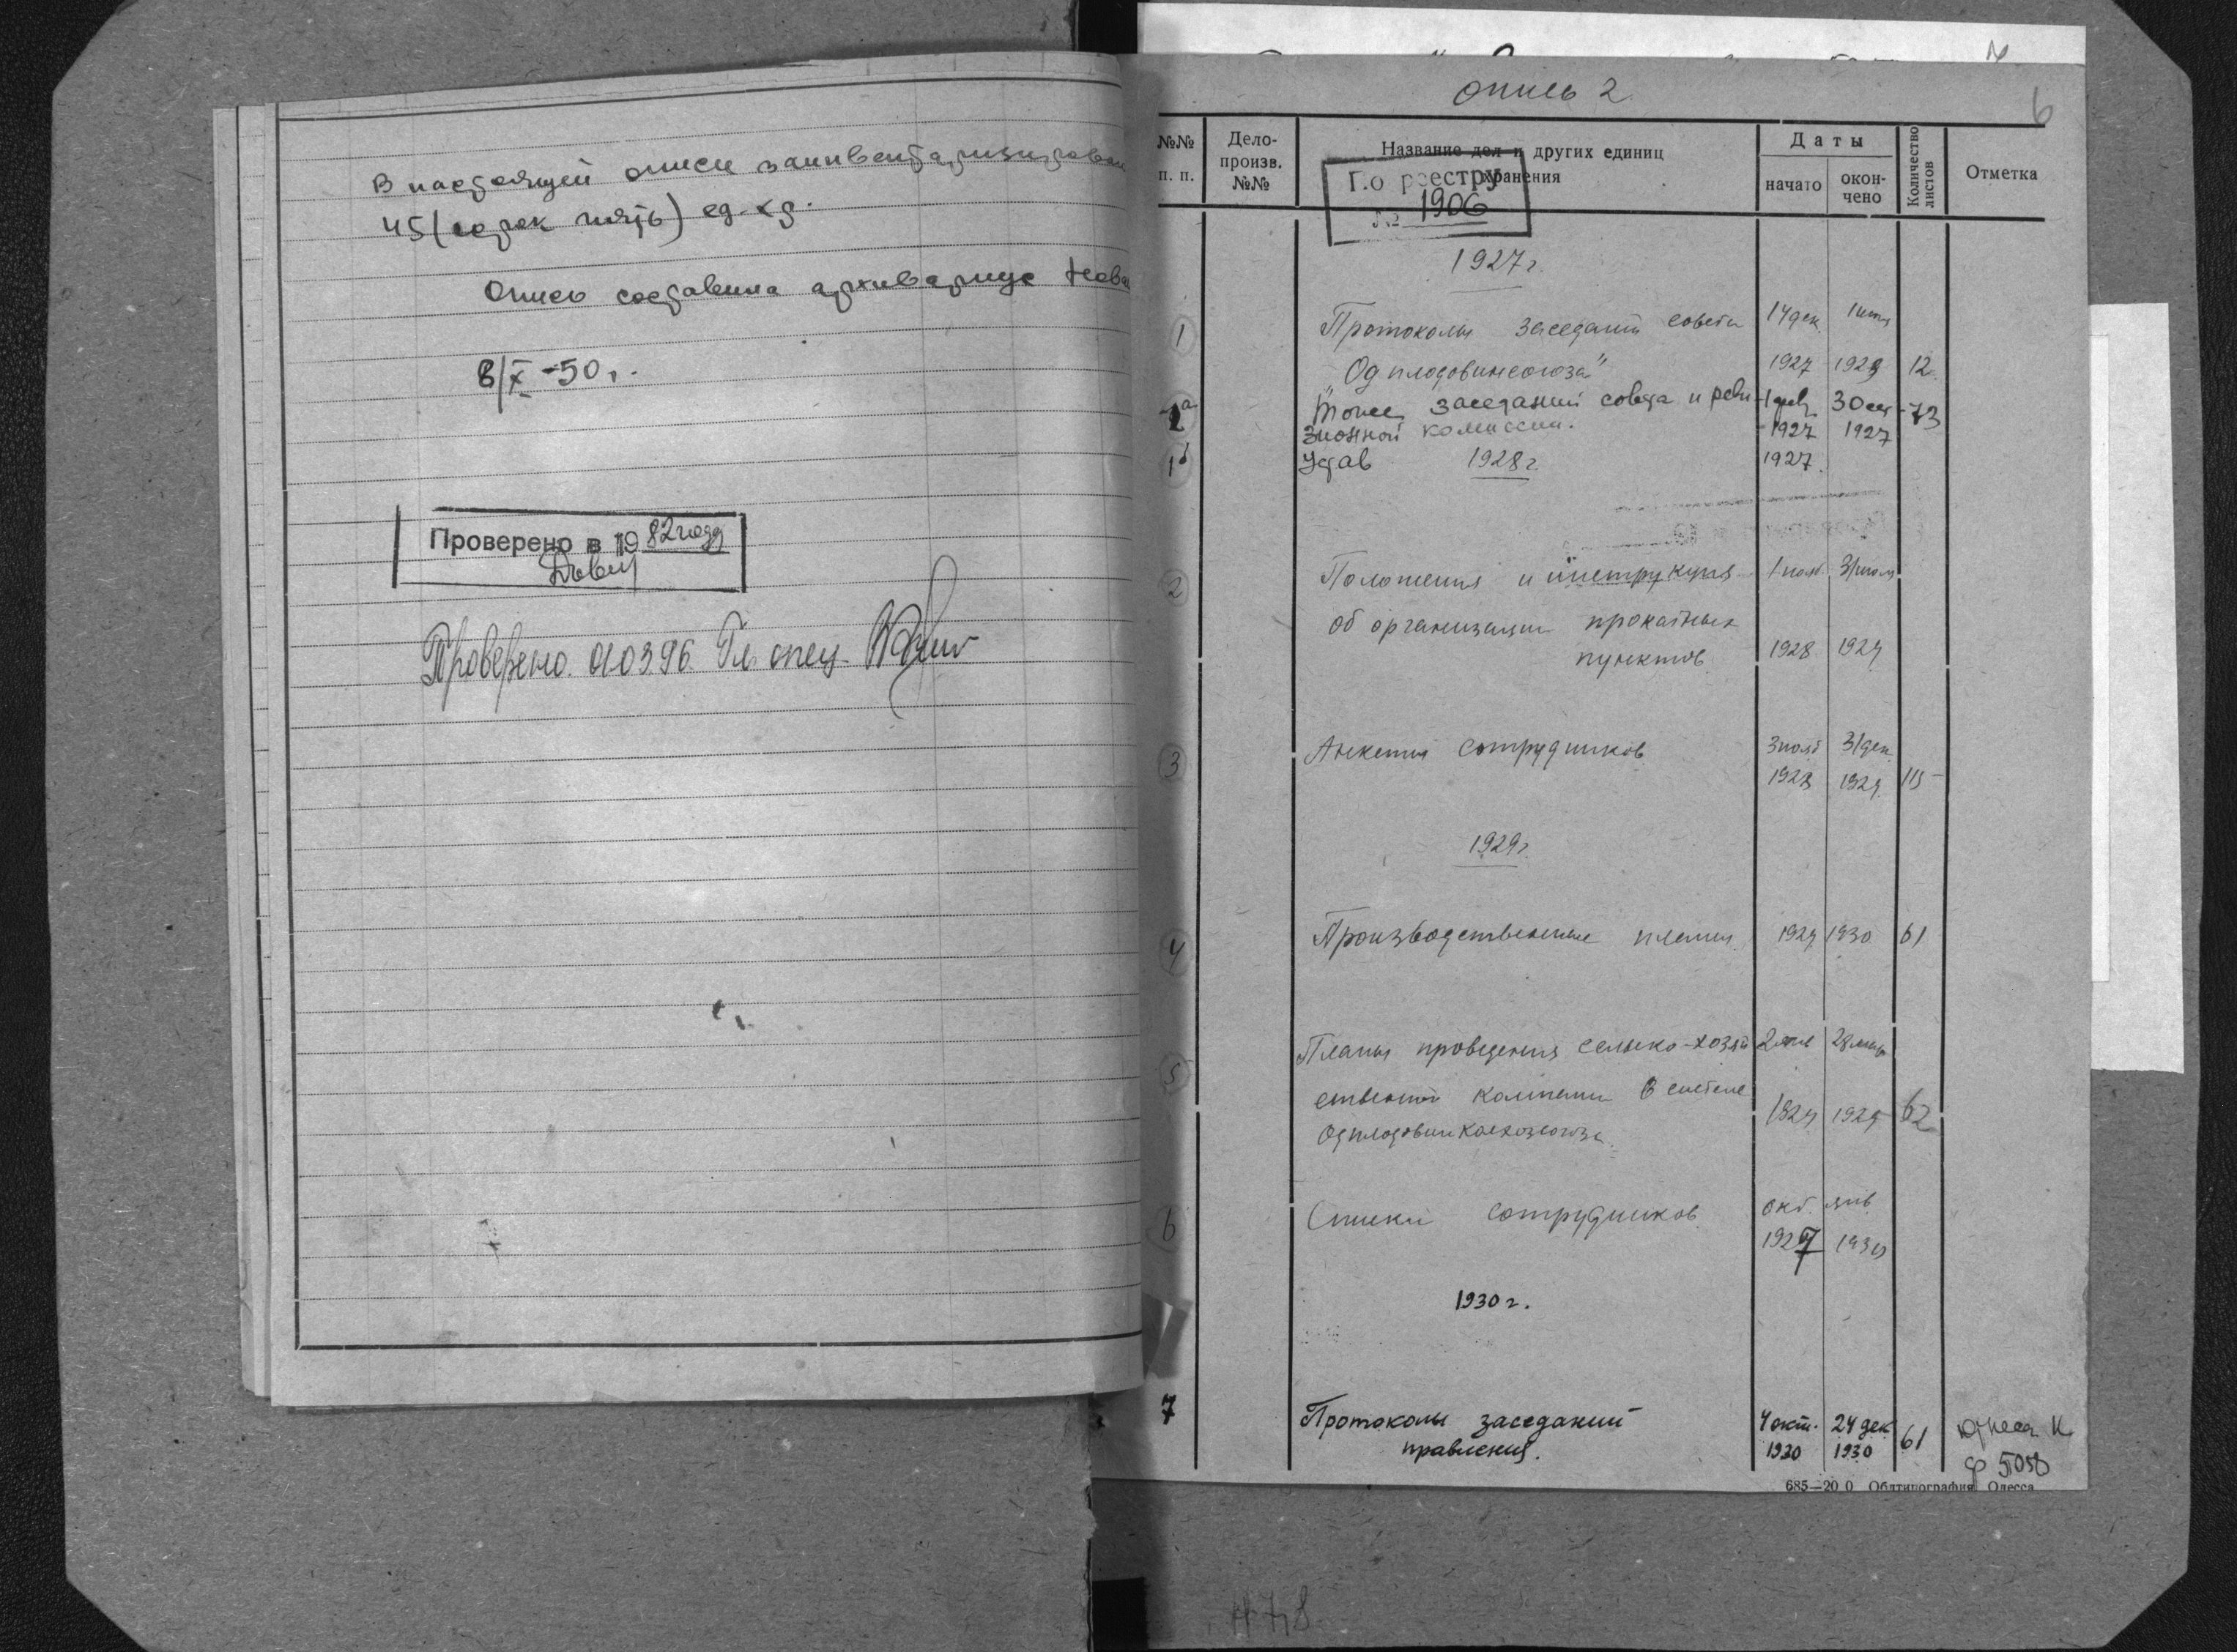 В настоящей описи заинвентаризирован
45 (сорок пять) ед. хр.
Опись составила архивариус
8/X-50 г.
Проверено в 1982 году
Проверено. 010396. Гл. спец.
опись 2
6
№№ п. п.
Дело-произв. №№
Название дел и других единиц хранения
Даты
начато
окон-чено
Количество листов
Отметка
По реестру
№ 1906
1927 г.
1 Протоколы заседаний совета 14 дек.
"Одплодовинсоюза" 1927 1928 12
1а Тоже, заседаний совета и реви- 30 73
зионной комиссии. 1927 1927
1б Устав 1927.
1928 г.
2 Положения и инструкция
об организации прокатных
пунктов 1928 1929
3 Анкеты сотрудников 31 дек.
1928 1929
1929 г.
4 Производственные планы 1929 1930 61
5 Планы проведения сельско-хозяй
ственной кампании в системе 1929 1929 62
Одплодовинколхозсоюза
6 Списки сотрудников окт. янв
1927 1930
1930 г.
7 Протоколы заседаний 4 окт. 24 дек 61
правления. 1930 1930
ф 5058
685—20 0 Облтипография Одесса